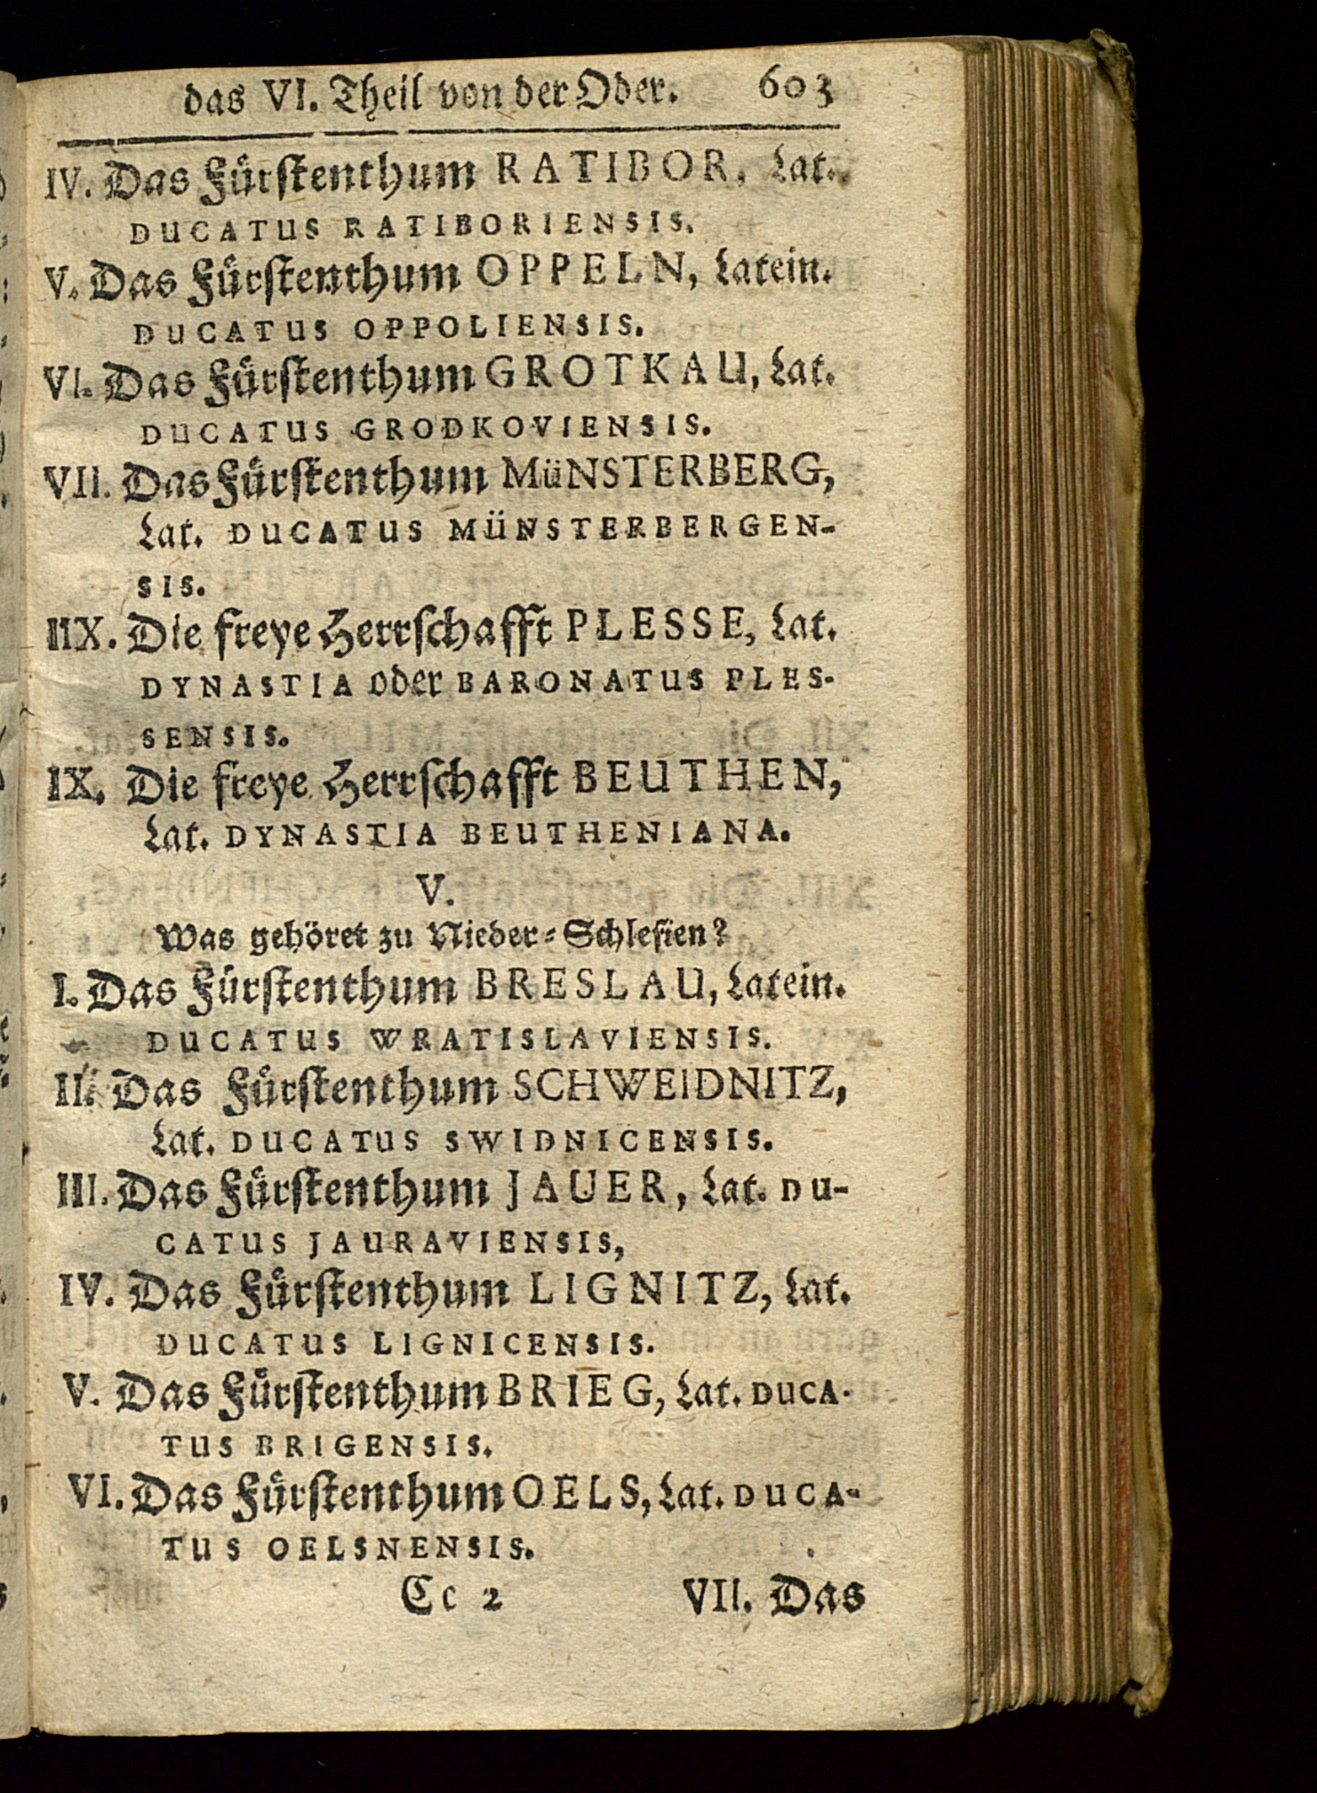 das VI. Theil von der Oder. 603
IV. Das Fürstenthum RATIBOR, Lat.
DUCATUS RATIBORIENSIS.
V. Das Fürstenthum OPPELN, Latein.
DUCATUS OPPOLIENSIS.
VI. Das Fürstenthum GROTKAU, Lat.
DUCATUS GRODKOVIENSIS.
VII. Das Fürstenthum MüNSTERBERG,
Lat. DUCATUS MÜNSTERBERGEN-
SIS.
IIX. Die freye Herrschafft PLESSE, Lat.
DYNASTIA oder BARONATUS PLES-
SENSIS.
IX. Die freye Herrschafft BEUTHEN,
Lat. DYNASTIA BEUTHENIANA.
V.
Was gehöret zu Nieder-Schlesien?
I. Das Fürstenthum BRESLAU, Latein.
DUCATUS WRATISLAVIENSIS.
II. Das Fürstenthum SCHWEIDNITZ,
Lat. DUCATUS SWIDNICENSIS.
III. Das Fürstenthum JAUER, Lat. DU-
CATUS JAURAVIENSIS,
IV. Das Fürstenthum LIGNITZ, Lat.
DUCATUS LIGNICENSIS.
V. Das Fürstenthum BRIEG, Lat. DUCA-
TUS BRIGENSIS.
VI. Das Fürstenthum OELS, Lat. DUCA-
TUS OELSNENSIS.
Cc 2 VII. Das